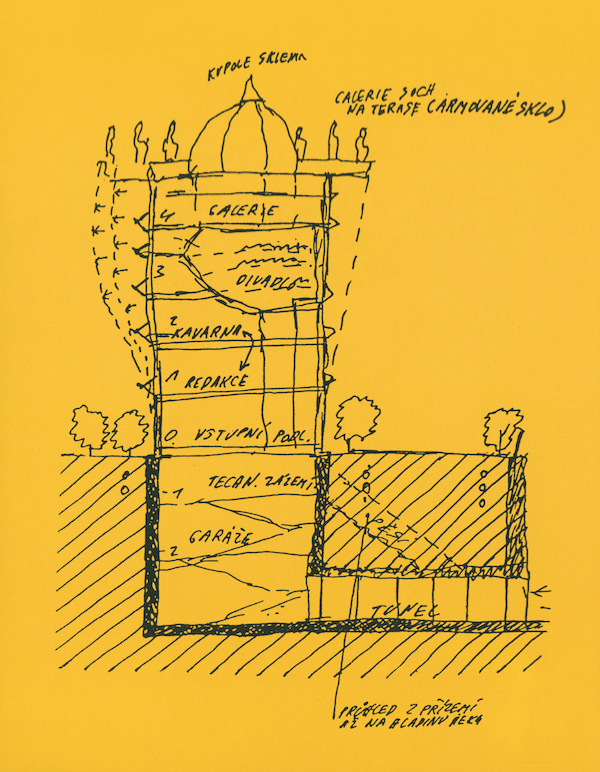 KUPOLE SKLENÁ
GALERIE SOCH
NA TERASE (ARMOVANÉ SKLO)
4 GALERIE
3 DIVADLO
2 KAVÁRNA
1 REDAKCE
0 VSTUPNÍ PODL.
-1 TECHN. ZÁZEMÍ
-2 GARÁŽE
TUNEL
PRŮHLED Z PŘÍZEMÍ
AŽ NA HLADINU ŘEKY